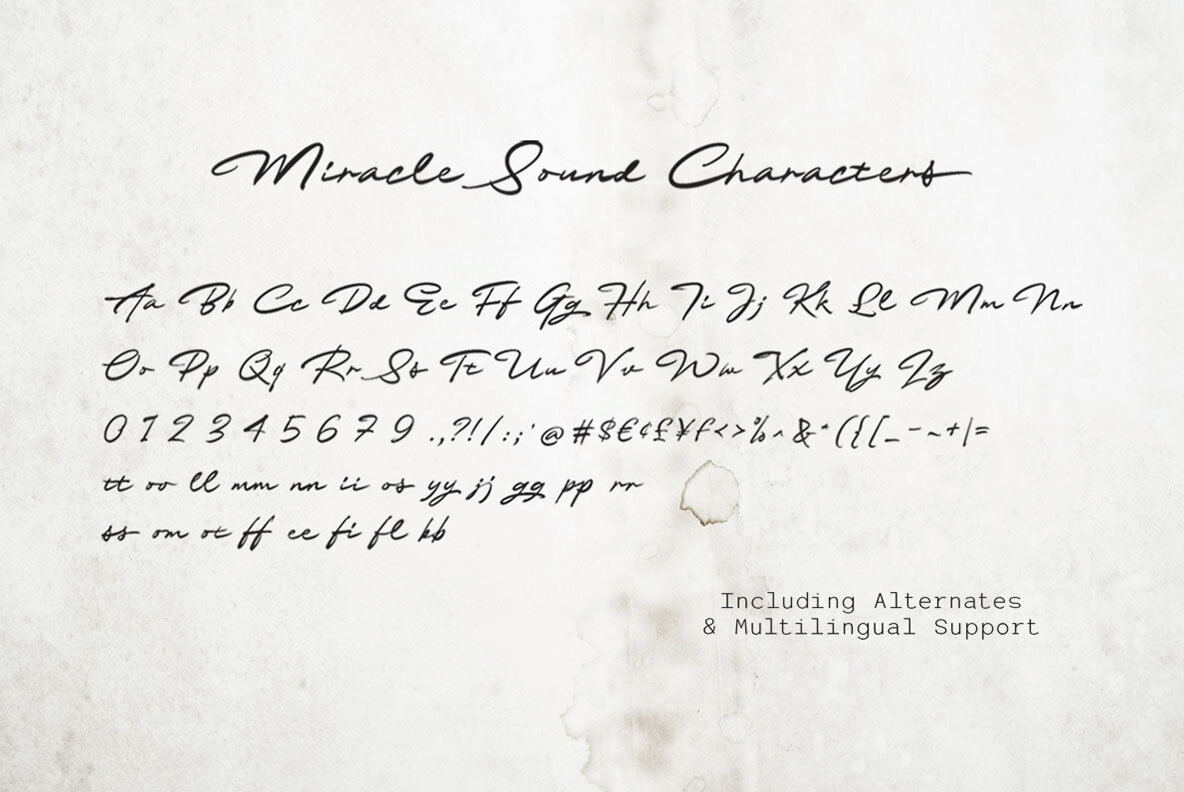 Miracle Sound Characters
Aa Bb Cc Dd Ee Ff Gg Hh Ii Jj Kk Ll Mm Nn
Oo Pp Qq Rr Ss Tt Uu Vv Ww Xx Yy Zz
0 1 2 3 4 5 6 7 9 .,?!/:;' @ #$€¢£¥ƒ<>%^&*({[_-~+|=
tt oo ll mm nn ii os yy jj gg pp rr
ss om ot ff ee fi fl bb
Including Alternates
& Multilingual Support